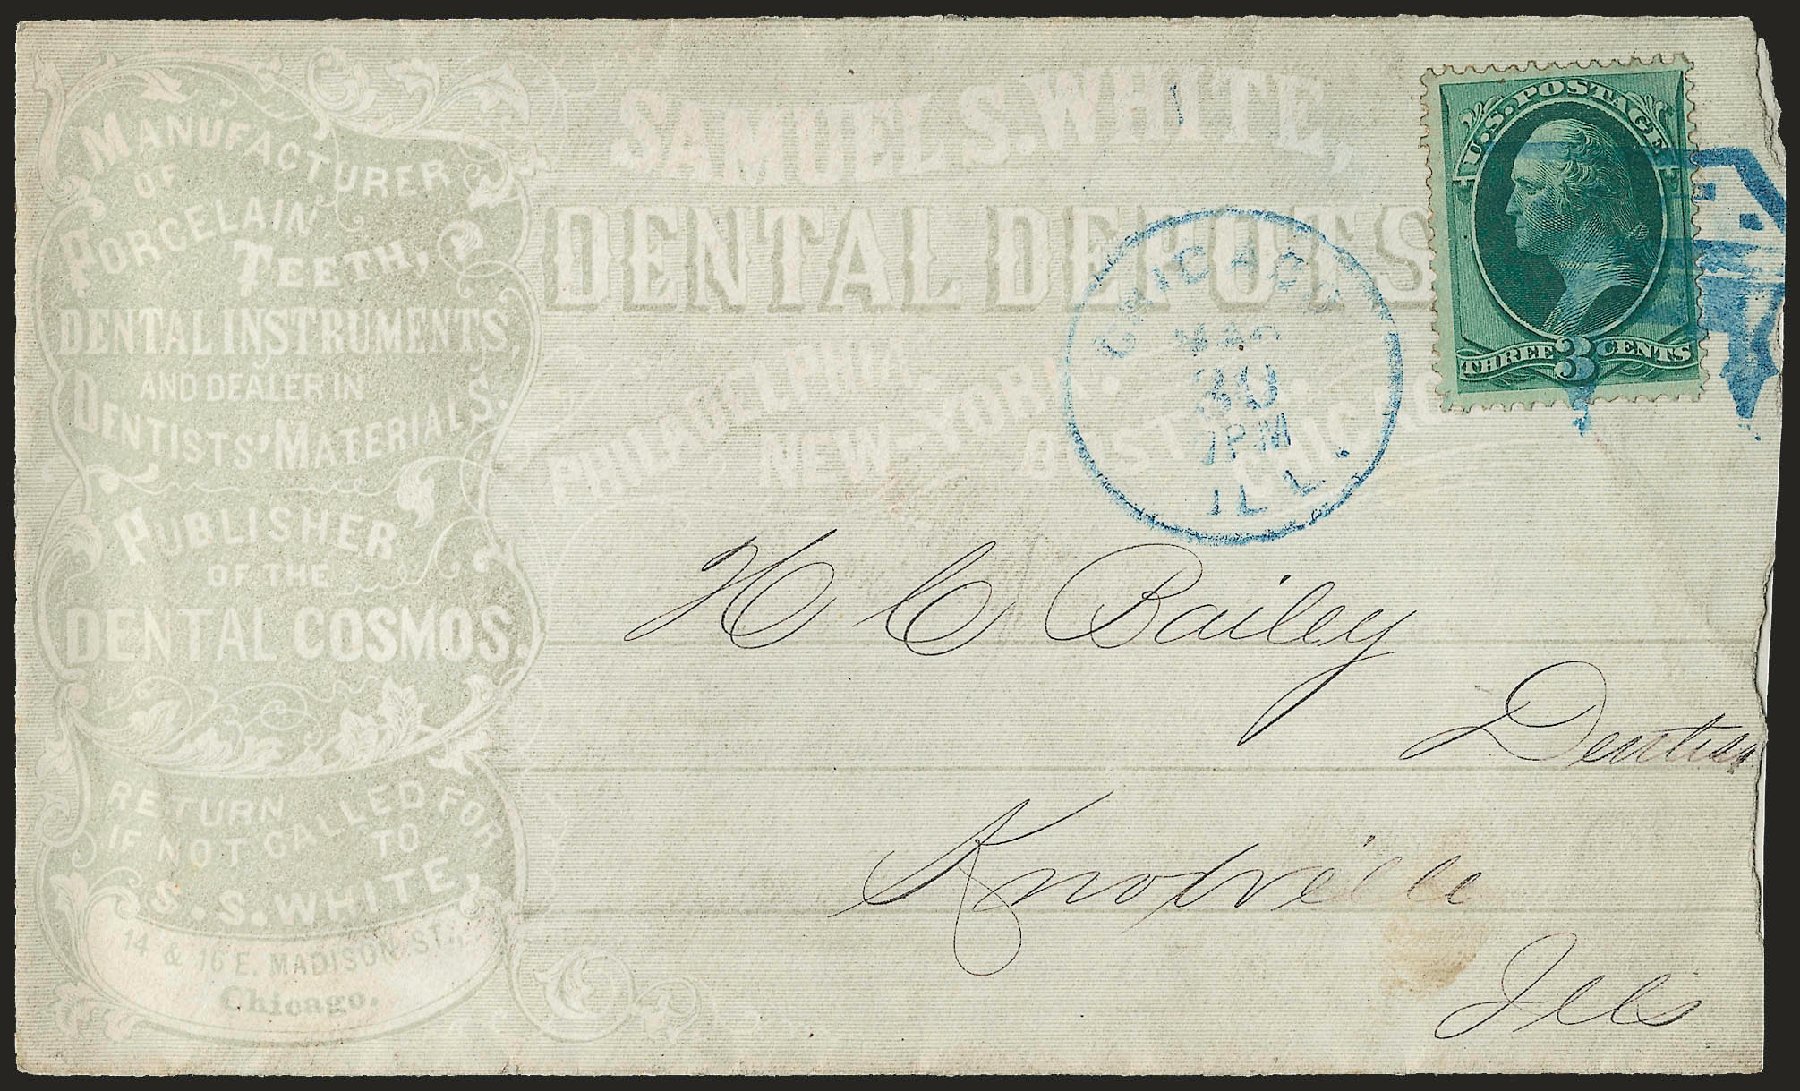 MANUFACTURER
OF
PORCELAIN
TEETH,
DENTAL INSTRUMENTS,
AND DEALER IN
DENTISTS' MATERIALS.
PUBLISHER
OF THE
DENTAL COSMOS.
RETURN
IF NOT CALLED FOR
TO
S. S. WHITE,
14 & 16 E. MADISON ST.,
Chicago.
SAMUEL S. WHITE,
DENTAL DEPOTS
PHILADELPHIA,
NEW-YORK,
BOSTON,
CHICAGO
CHICAGO
MAR
30
7PM
ILL.
U.S. POSTAGE
THREE 3 CENTS
H C Bailey
Dentist
Knoxville
Ills